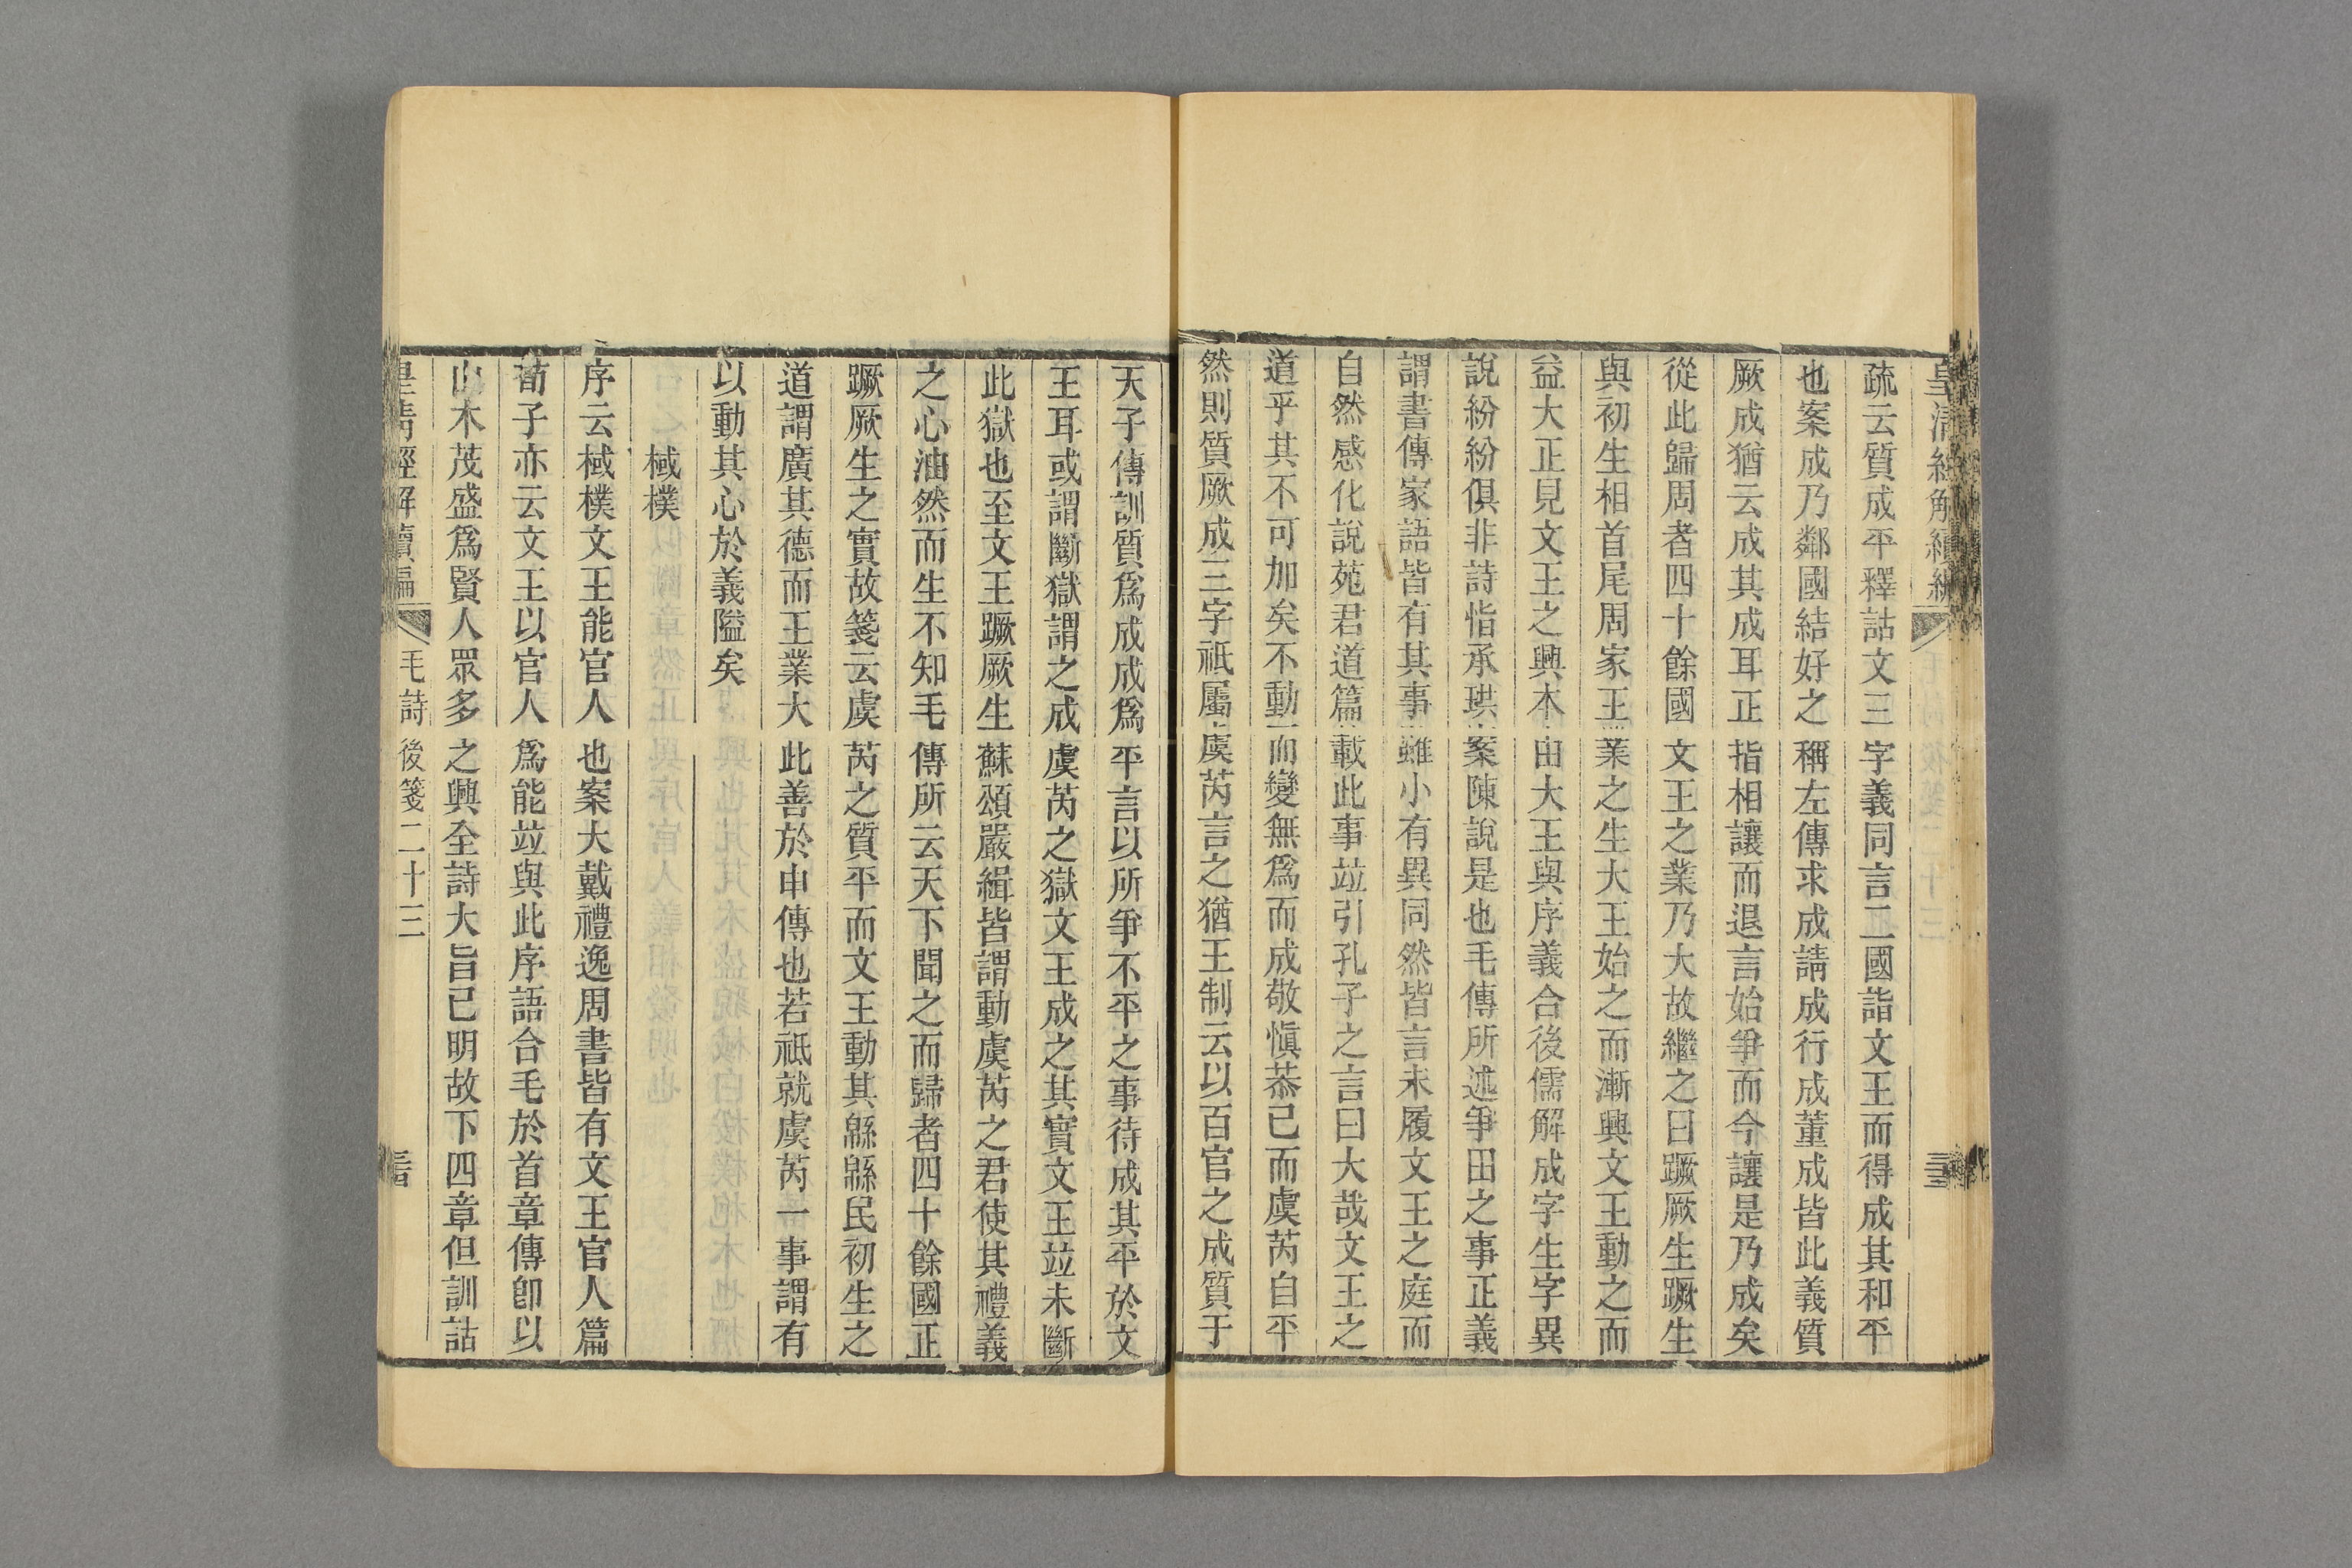 皇清經解續編
疏云質成平釋詁文三字義同言二國詣文王而得成其和平
也案成乃鄰國結好之稱左傳求成請成行成董成皆此義質
厥成猶云成其成耳正指相讓而退言始爭而今讓是乃成矣
從此歸周者四十餘國文王之業乃大故繼之曰蹶厥生蹶生
與初生相首尾周家王業之生大王始之而漸興文王動之而
益大正見文王之興本由大王與序義合後儒解成字生字異
說紛紛俱非詩恉承珙案陳說是也毛傳所述爭田之事正義
謂書傳家語皆有其事雖小有異同然皆言未履文王之庭而
自然感化說苑君道篇載此事竝引孔子之言曰大哉文王之
道乎其不可加矣不動而變無爲而成敬愼恭己而虞芮自平
然則質厥成三字祇屬虞芮言之猶王制云以百官之成質于
天子傳訓質爲成成爲平言以所爭不平之事待成其平於文
王耳或謂斷獄謂之成虞芮之獄文王成之其實文王竝未斷
此獄也至文王蹶厥生蘇頌嚴緝皆謂動虞芮之君使其禮義
之心油然而生不知毛傳所云天下聞之而歸者四十餘國正
蹶厥生之實故箋云虞芮之質平而文王動其緜緜民初生之
道謂廣其德而王業大此善於申傳也若祇就虞芮一事謂有
以動其心於義隘矣
棫樸
序云棫樸文王能官人也案大戴禮逸周書皆有文王官人篇
荀子亦云文王以官人爲能竝與此序語合毛於首章傳卽以
山木茂盛爲賢人眾多之興全詩大旨已明故下四章但訓詁
皇清經解續編 毛詩後箋二十三